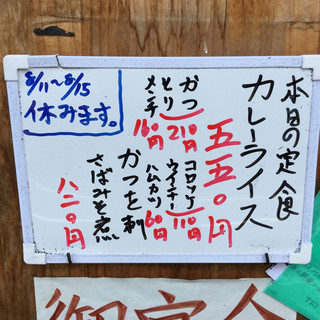 本日の定食
カレーライス
五五〇円
かつ
とり 210円
メンチ 160円
コロッケ
ウインナー 110円
ハムカツ 60円
かつを刺
さばみそ煮
八二〇円
8/11~8/15
休みます。
御定食